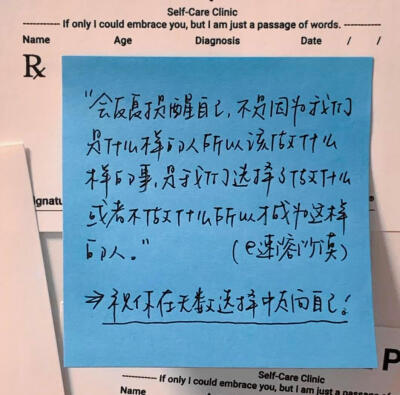 Self-Care Clinic
----------- If only I could embrace you, but I am just a passage of words. -----------
Name Age Diagnosis Date / /
℞
“会反复提醒自己,不是因为我们
是什么样的人所以该做什么
样的事,是我们选择了做什么
或者不做什么所以才成为这样
的人。” (@速溶
⇒ 祝你在无数选择中 向自己!
gnatu
P
Self-Care Clinic
----------- If only I could embrace you, but I am just a passa
Name Age Diagnosis